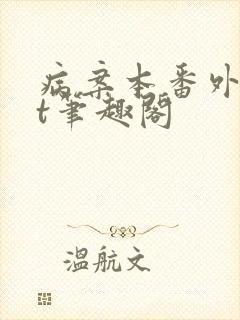 病案本番外
t笔趣阁
温航文